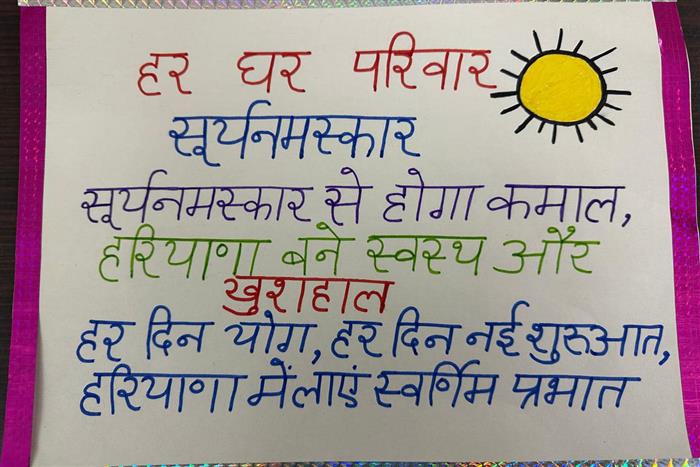 हर घर परिवार
सूर्यनमस्कार
सूर्यनमस्कार से होगा कमाल,
हरियाणा बने स्वस्थ और
खुशहाल
हर दिन योग, हर दिन नई शुरुआत,
हरियाणा में लाएं स्वर्णिम प्रभात